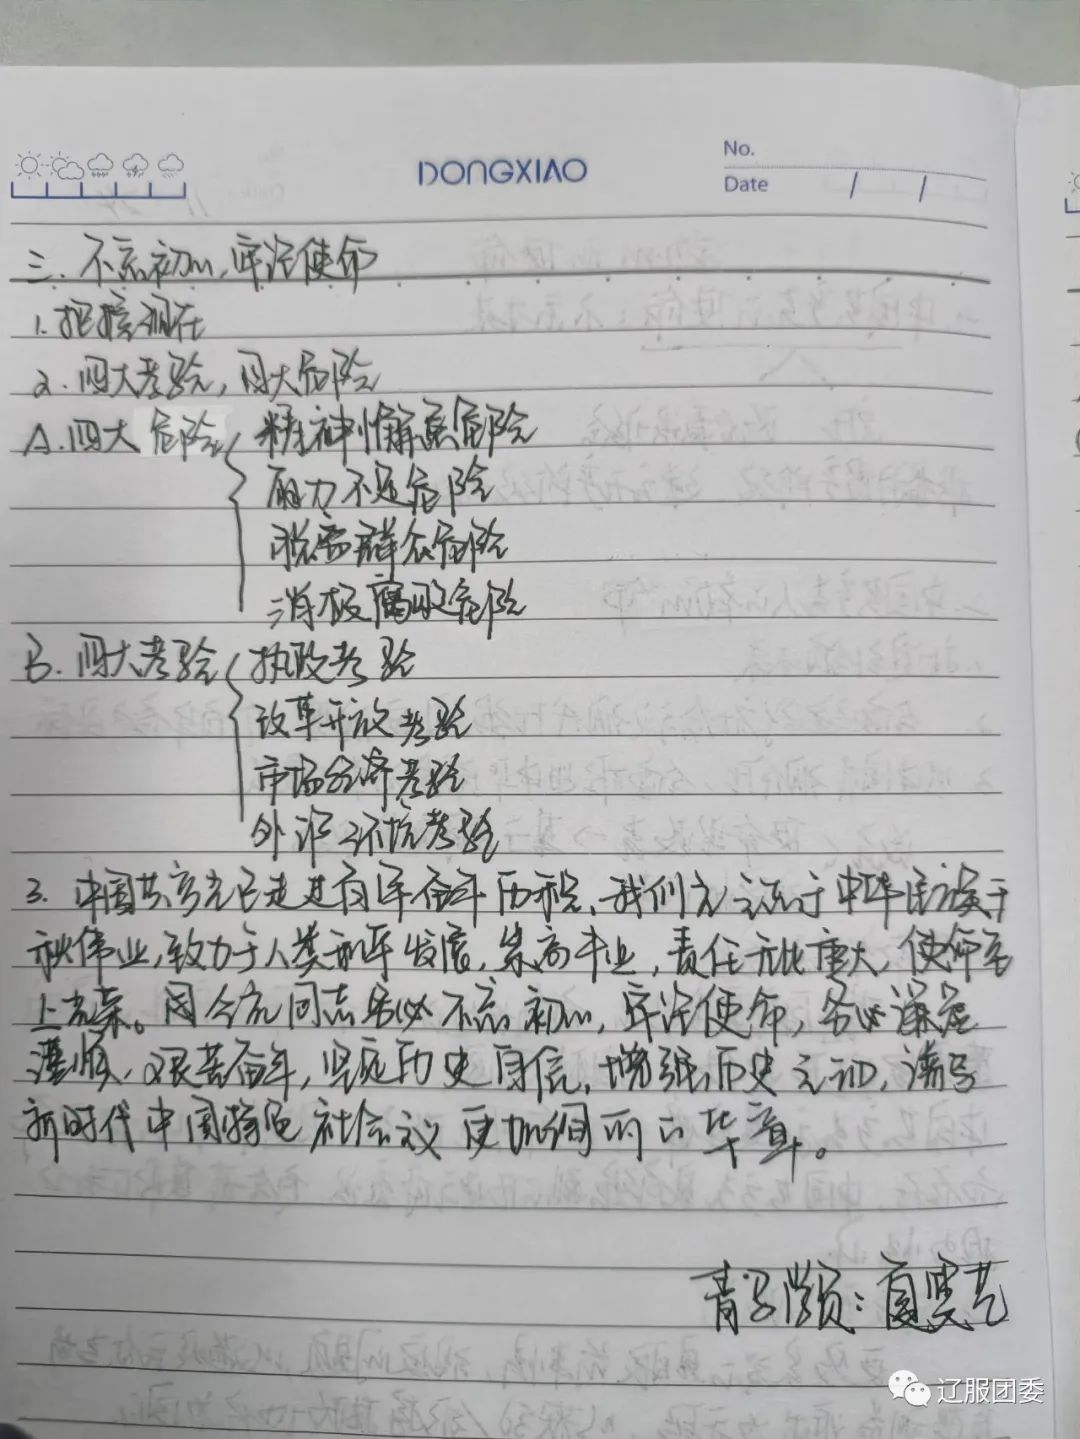 DONGXIAO
No.
Date / /
三. 不忘初心, 牢记使命
1. 把握现在
2. 四大考验, 四大危险
A. 四大危险 精神懈怠危险
能力不足危险
脱离群众危险
消极腐败危险
B. 四大考验 执政考验
改革开放考验
市场经济考验
外部环境考验
3. 中国共产党已走过百年奋斗历程, 我们党立志于中华民族千
秋伟业, 致力于人类和平发展, 崇高事业, 责任无比重大, 使命无
上光荣。同全党同志务必不忘初心, 牢记使命, 务必谦虚
谨慎, 艰苦奋斗, 坚定历史自信, 增强历史主动, 谱写
新时代中国特色社会主义更加绚丽的华章。
青马学员:
辽服团委